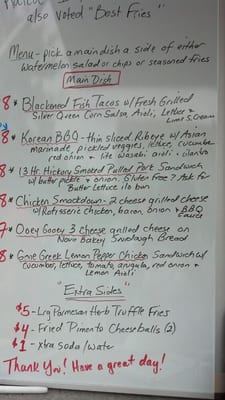 also voted "Best Fries"
Menu - pick a main dish a side of either
watermelon salad or chips or seasoned fries
Main Dish
8 * Blackened Fish Tacos w/Fresh Grilled
Silver Queen Corn Salsa, Aioli, Lettuce &
Lime S. Cream
8 * Korean BBQ - thin sliced Ribeye w/Asian
marinade, pickled veggies, lettuce, cucumber
red onion & lite wasabi aioli + cilantro
8 * 13 Hr. Hickory Smoked Pulled Pork Sandwich
w/butter pickle & onion. Gluten Free? Ask for
Butter Lettuce i/o bun
8 * Chicken Smackdown - 2 cheese grilled cheese
w/Rotisserie Chicken, bacon, onion & BBQ
sauce
7 * Ooey Gooey 3 cheese grilled cheese on
Novo Bakery Sourdough Bread
8 * Gone Greek Lemon Pepper Chicken Sandwich w/
cucumber, lettuce, tomato, arugula, red onion &
Lemon Aioli
"Extra Sides"
$5 - Lrg Parmesan Herb Truffle Fries
$4 - Fried Pimento Cheeseballs (2)
$1 - Xtra Soda/Water
Thank You! Have a great day!